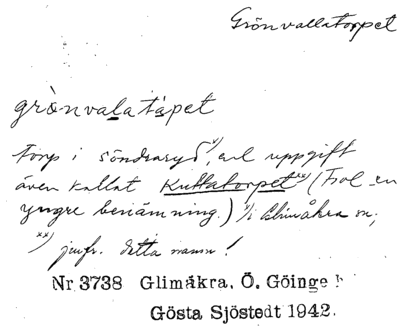 Grönvallatorpet
grònvalatápet
torp i söndraryd, enl uppgift
även kallat Kuttatorpet xx) (Trol. en
yngre benämning.) i Glimåkra sn;
xx) jmfr. detta namn!
Nr 3738 Glimåkra, Ö. Göinge h
Gösta Sjöstedt 1942.